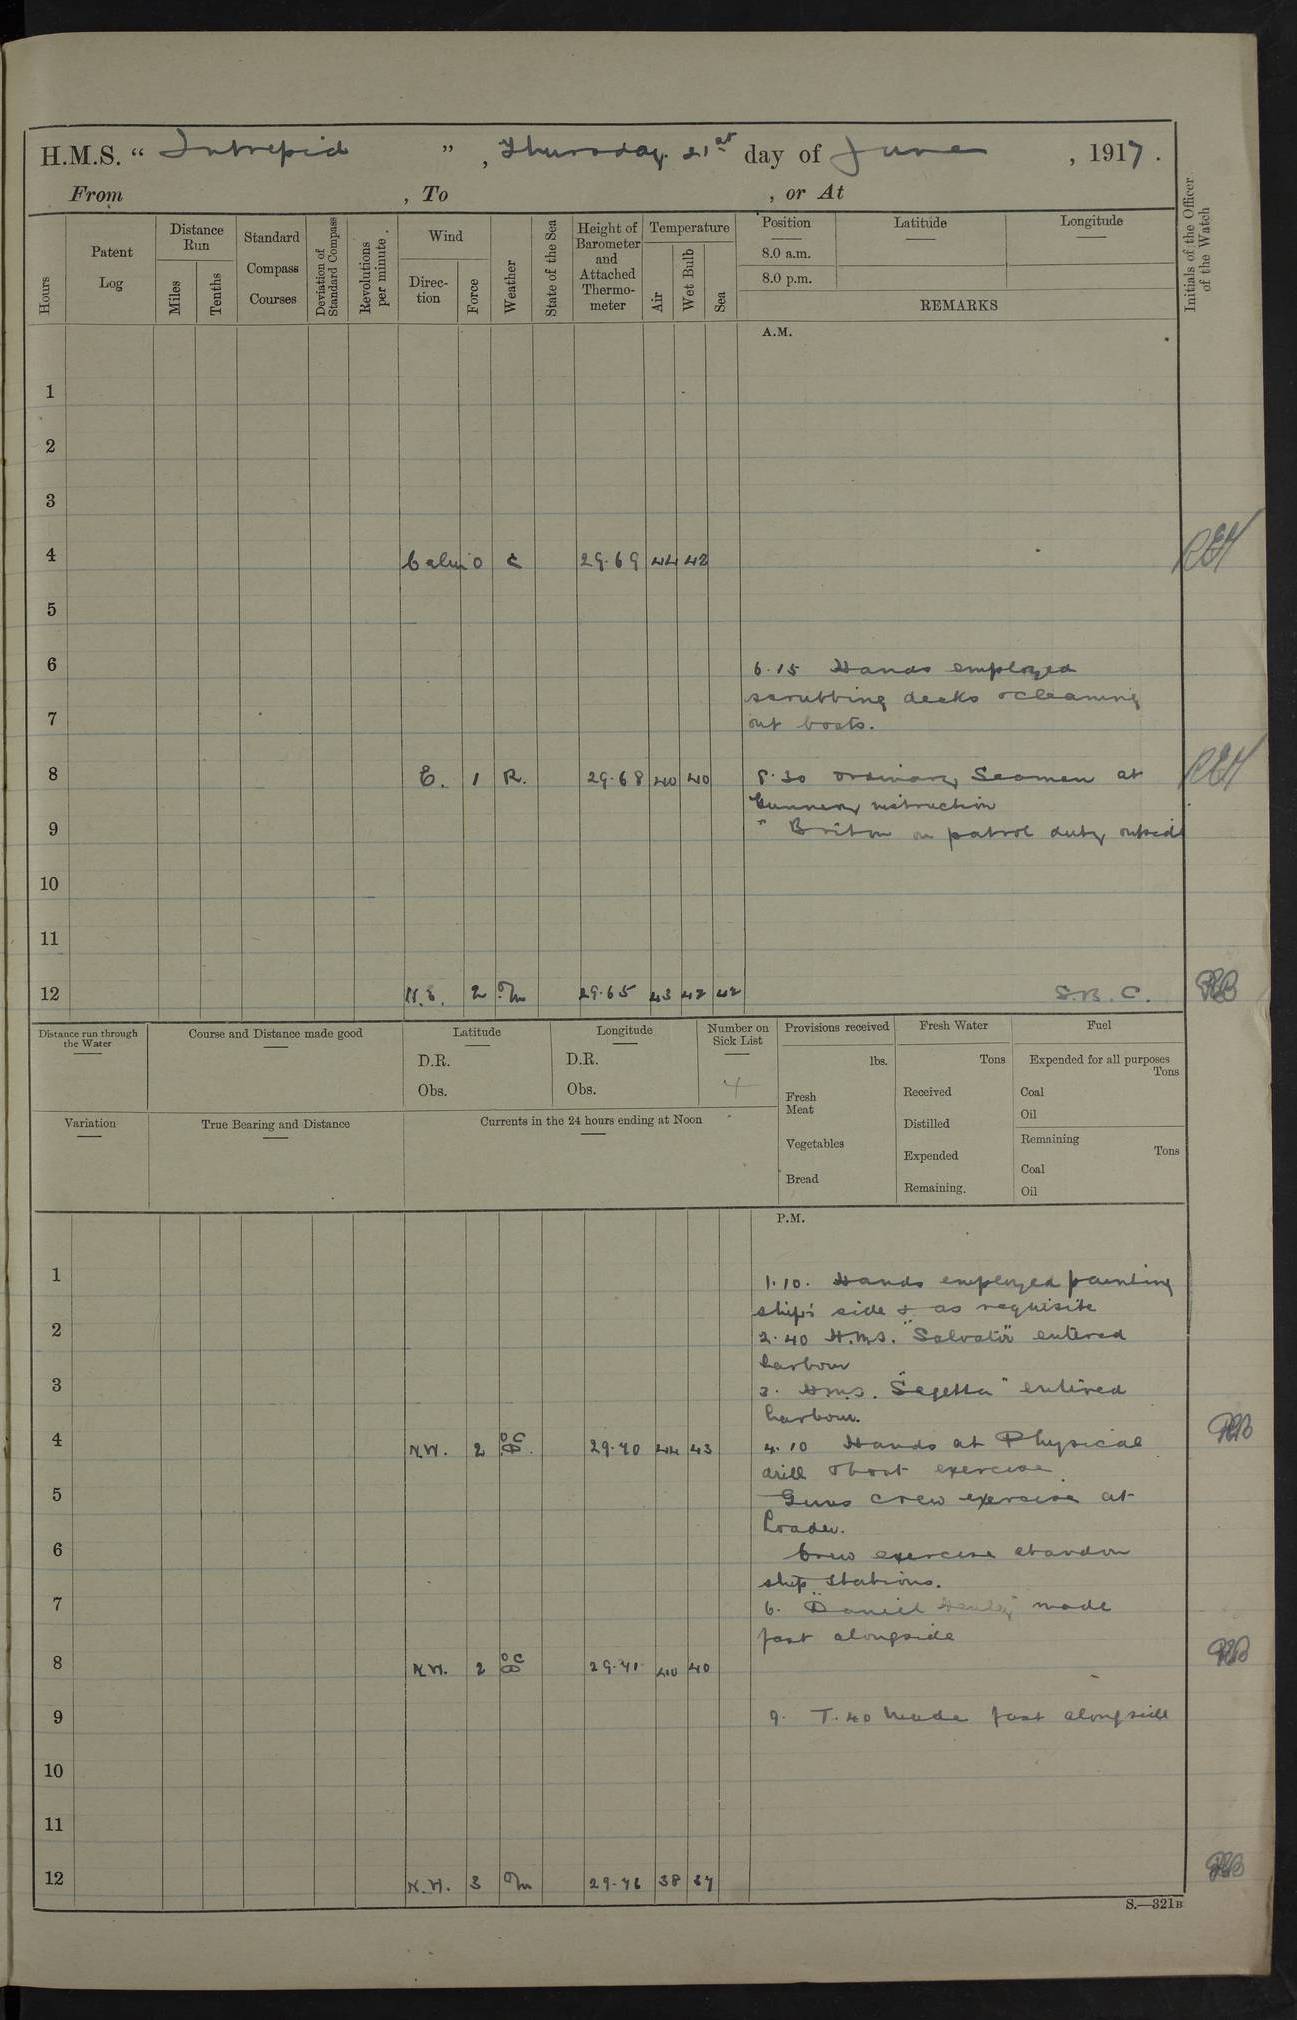 H.M.S. “ Intrepid ” , Thursday. 21st day of June , 1917 .
From , To , or At
Hours
Patent Log
Distance Run
Miles
Tenths
Standard Compass Courses
Deviation of Standard Compass
Revolutions per minute.
Wind
Direc-tion
Force
Weather
State of the Sea
Height of Barometer and Attached Thermo-meter
Temperature
Air
Wet Bulb
Sea
Position
8.0 a.m.
8.0 p.m.
Latitude
Longitude
REMARKS
Initials of the Officer of the Watch
A.M.
1
2
3
4 Calm 0 c 29.69 44 42
5
6 6.15 Hands employed
scrubbing decks & cleaning
7 out boats.
8 E. 1 R. 29.68 40 40 8.30 Ordinary Seamen at
Gunnery instruction
9 " Briton on patrol duty outside
10
11
12 N.E. 2 o/m 29.65 43 42 42 S.B.C.
Distance run through the Water
Course and Distance made good
Latitude
D.R.
Obs.
Longitude
D.R.
Obs.
Number on Sick List
4
Provisions received
lbs.
Fresh Meat
Vegetables
Bread
Fresh Water
Tons
Received
Distilled
Expended
Remaining.
Fuel
Expended for all purposes
Tons
Coal
Oil
Remaining
Tons
Coal
Oil
Variation
True Bearing and Distance
Currents in the 24 hours ending at Noon
P.M.
1 1.10. Hands employed painting
ship's side & as requisite
2 2.40 H.M.S. "Salvator" entered
harbour
3 3. H.M.S. "Sagetta" entered
harbour.
4 N.W. 2 29.70 44 43 4.10 Hands at Physical
drill & boat exercise.
5 Guns crew exercise at
Loader.
6 Crew exercise abandon
ship stations.
7 6. "Daniel Henley" made
fast alongside
8 N.W. 2 29.71 40 40
9 9. T.40 made fast alongside
10
11
12 N.W. 3 o/m 29.76 38 37
S.—321B